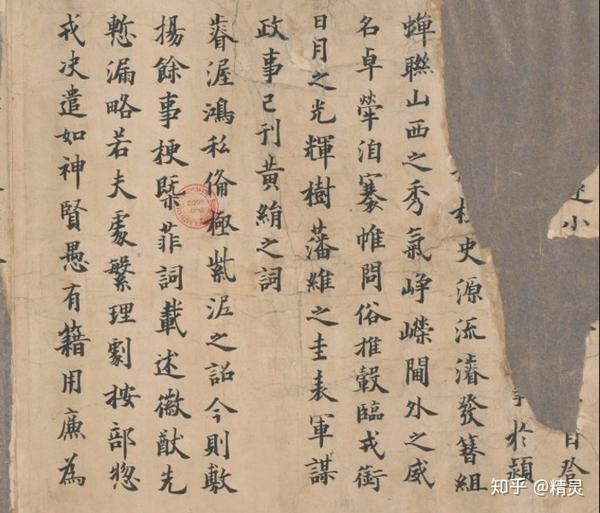 小自登
於穎
史源流濬發簪組
蟬聯山西之秀氣崢嶸閫外之威
名卓犖洎褰帷問俗推轂臨戎
日月之光輝樹藩維之圭表軍謀
政事已刊黃絹之詞
渥鴻私俻極紫泥之詔今則敷
揚餘事梗槩菲詞載述徽猷先
慙漏略若夫處繁理劇按部惣
戎决遣如神賢愚有籍用廉為
知乎 @精灵